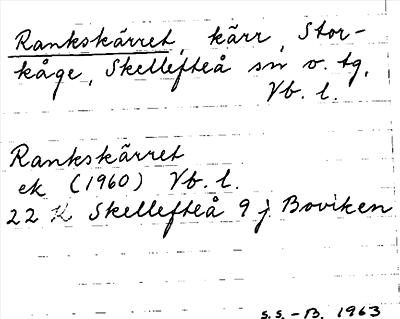 Rankskärret, kärr, Stor-
kåge, Skellefteå sn o. tg,
Vb. l.
Rankskärret
ek (1960) Vb. l.
22 K Skellefteå 9 j Boviken
S.S. - B. 1963